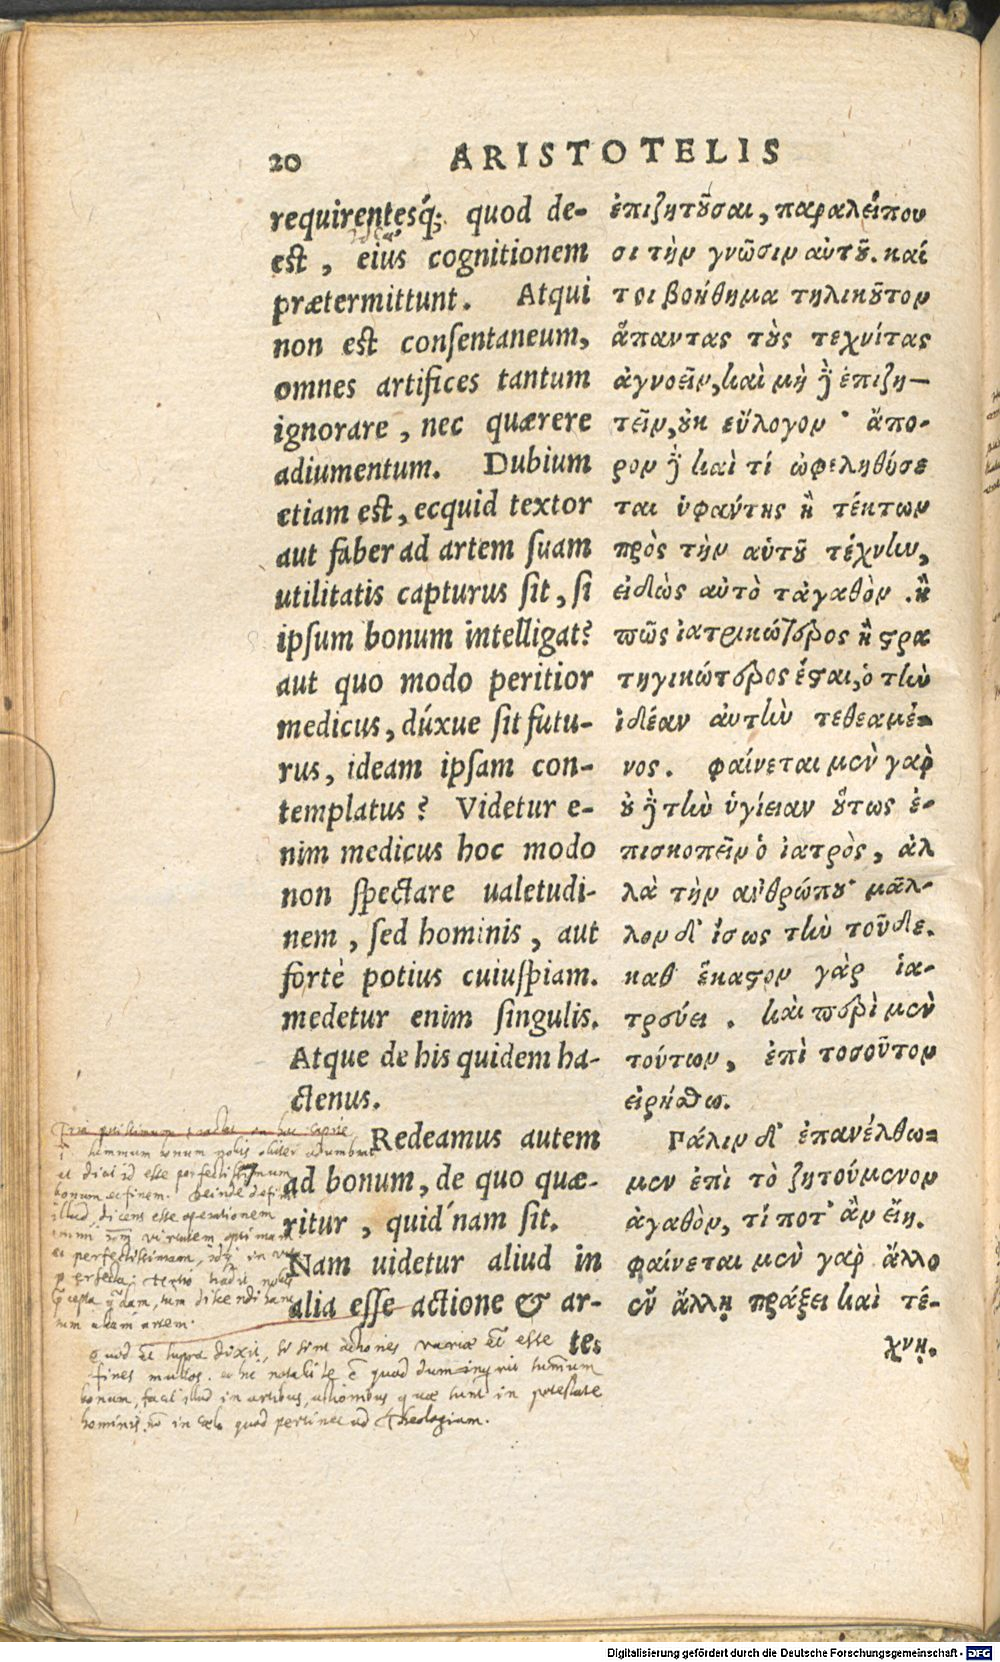 20 ARISTOTELIS
requirentesq́; quod de-
est, eius cognitionem
prætermittunt. Atqui
non est consentaneum,
omnes artifices tantum
ignorare, nec quærere
adiumentum. Dubium
etiam est, ecquid textor
aut faber ad artem suam
utilitatis capturus sit, si
ipsum bonum intelligat?
aut quo modo peritior
medicus, dúxue sit futu-
rus, ideam ipsam con-
templatus? Videtur e-
nim medicus hoc modo
non spectare ualetudi-
nem, sed hominis, aut
fortè potius cuiuspiam.
medetur enim singulis.
Atque de his quidem ha-
ctenus.
Redeamus autem
ad bonum, de quo quæ-
ritur, quid'nam sit.
Nam uidetur aliud in
alia esse actione & ar-
te.
ἐπιζητοῦσαι, παραλείπου
σι τὴν γνῶσιν αὐτοῦ. καί
τοι βοήθημα τηλικοῦτον
ἅπαντας τοὺς τεχνίτας
ἀγνοεῖν, καὶ μὴ δὲ ἐπιζη-
τεῖν, οὐκ εὔλογον· ἄπο-
ρον δὲ καὶ τί ὠφεληθήσε
ται ὑφάντης ἢ τέκτων
πρὸς τὴν αὑτοῦ τέχνην,
εἰδὼς αὐτὸ τἀγαθὸν. ἢ
πῶς ἰατρικώτερος ἢ στρα
τηγικώτερος ἔσται, ὁ τὴν
ἰδέαν αὐτὴν τεθεαμέ-
νος. φαίνεται μὲν γὰρ
οὐ δὲ τὴν ὑγίειαν οὕτως ἐ-
πισκοπεῖν ὁ ἰατρὸς, ἀλ
λὰ τὴν ἀνθρώπου· μᾶλ-
λον δ' ἴσως τὴν τοῦδε.
καθ ἕκαστον γὰρ ἰα-
τρεύει. καὶ περὶ μὲν
τούτων, ἐπὶ τοσοῦτον
εἰρήσθω.
Πάλιν δ' ἐπανέλθω-
μεν ἐπὶ τὸ ζητούμενον
ἀγαθὸν, τί ποτ' ἂν εἴη.
φαίνεται μὲν γὰρ ἄλλο
ἐν ἄλλῃ πράξει καὶ τέ-
χνῃ.
summum bonum nobis
dicit id esse perfectissimum
bonum et finem. Deinde
illud, dicens esse operationem
perfectissimam
supra dixit, actiones variæ esse
fines multos. quod summum
bonum, in artibus, actionibus quæ sunt in potestate
hominis, quod pertinet ad Theologiam.
Digitalisierung gefördert durch die Deutsche Forschungsgemeinschaft - DFG